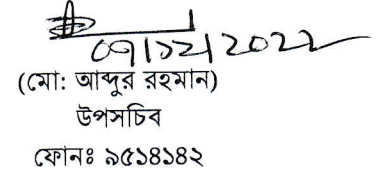 ০৭/১২/২০২২
(মো: আব্দুর রহমান)
উপসচিব
ফোনঃ ৯৫১৪১৪২